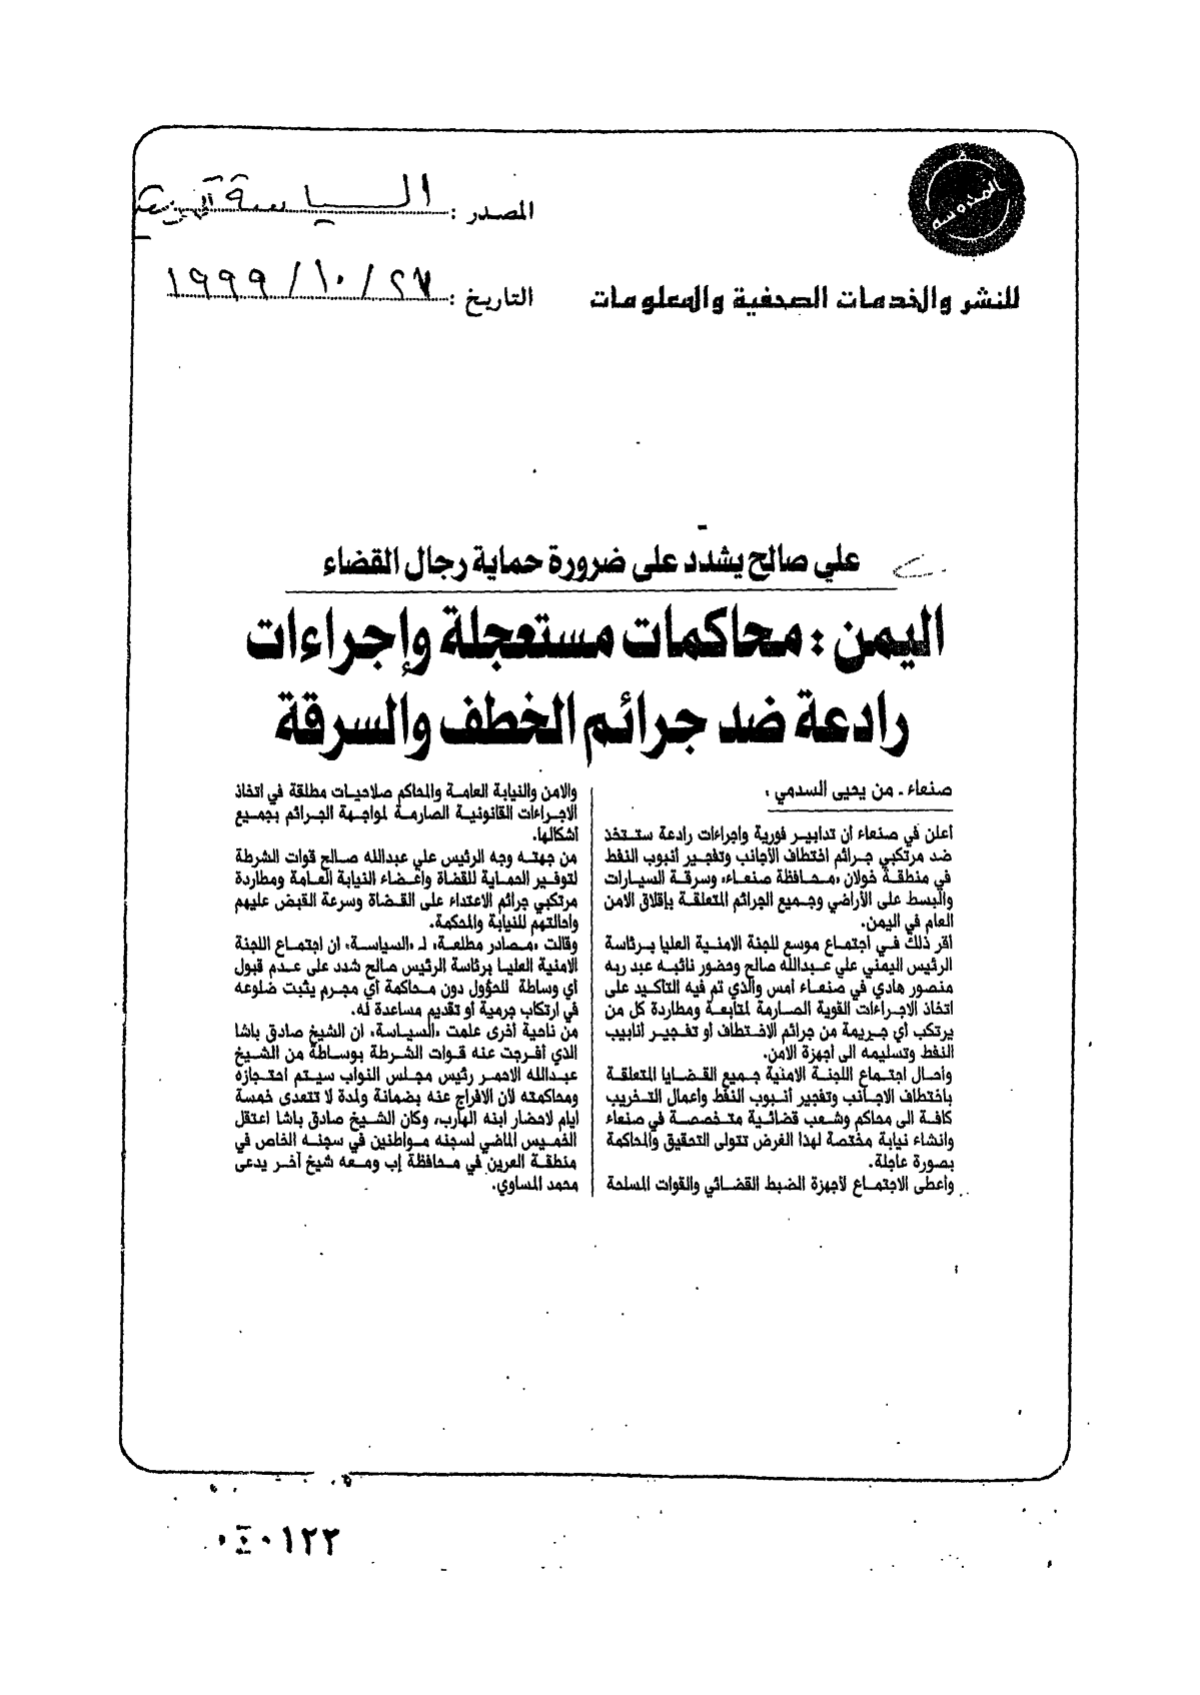 المصدر : السياسة الكويتية
التاريخ : ٢٧ / ١٠ / ١٩٩٩
للنشر والخدمات الصحفية والمعلومات
علي صالح يشدد على ضرورة حماية رجال القضاء
اليمن : محاكمات مستعجلة وإجراءات
رادعة ضد جرائم الخطف والسرقة
صنعاء - من يحيى السدمي :
اعلن في صنعاء ان تدابير فورية واجراءات رادعة ستتخذ
ضد مرتكبي جرائم اختطاف الأجانب وتفجير أنبوب النفط
في منطقة خولان «محافظة صنعاء» وسرقة السيارات
والبسط على الأراضي وجميع الجرائم المتعلقة بإقلاق الامن
العام في اليمن.
اقر ذلك في اجتماع موسع للجنة الامنية العليا برئاسة
الرئيس اليمني علي عبدالله صالح وحضور نائبه عبد ربه
منصور هادي في صنعاء امس والذي تم فيه التاكيد على
اتخاذ الاجراءات القوية الصارمة لمتابعة ومطاردة كل من
يرتكب أي جريمة من جرائم الاختطاف او تفجير انابيب
النفط وتسليمه الى اجهزة الامن.
واحال اجتماع اللجنة الامنية جميع القضايا المتعلقة
باختطاف الاجانب وتفجير أنبوب النفط واعمال التخريب
كافة الى محاكم وشعب قضائية متخصصة في صنعاء
وانشاء نيابة مختصة لهذا الغرض تتولى التحقيق والمحاكمة
بصورة عاجلة.
وأعطى الاجتماع لأجهزة الضبط القضائي والقوات المسلحة
والامن والنيابة العامة والمحاكم صلاحيات مطلقة في اتخاذ
الاجراءات القانونية الصارمة لمواجهة الجرائم بجميع
أشكالها.
من جهته وجه الرئيس علي عبدالله صالح قوات الشرطة
لتوفير الحماية للقضاة واعضاء النيابة العامة ومطاردة
مرتكبي جرائم الاعتداء على القضاة وسرعة القبض عليهم
واحالتهم للنيابة والمحكمة.
وقالت «مصادر مطلعة» لـ «السياسة» ان اجتماع اللجنة
الامنية العليا برئاسة الرئيس صالح شدد على عدم قبول
أي وساطة للحؤول دون محاكمة أي مجرم يثبت ضلوعه
في ارتكاب جرمية أو تقديم مساعدة له.
من ناحية أخرى علمت «السياسة» ان الشيخ صادق باشا
الذي أفرجت عنه قوات الشرطة بوساطة من الشيخ
عبدالله الاحمر رئيس مجلس النواب سيتم احتجازه
ومحاكمته لأن الافراج عنه بضمانة ولمدة لا تتعدى خمسة
ايام لاحضار ابنه الهارب، وكان الشيخ صادق باشا اعتقل
الخميس الماضي لسجنه مواطنين في سجنه الخاص في
منطقة العرين في محافظة إب ومعه شيخ آخر يدعى
محمد المساوي.